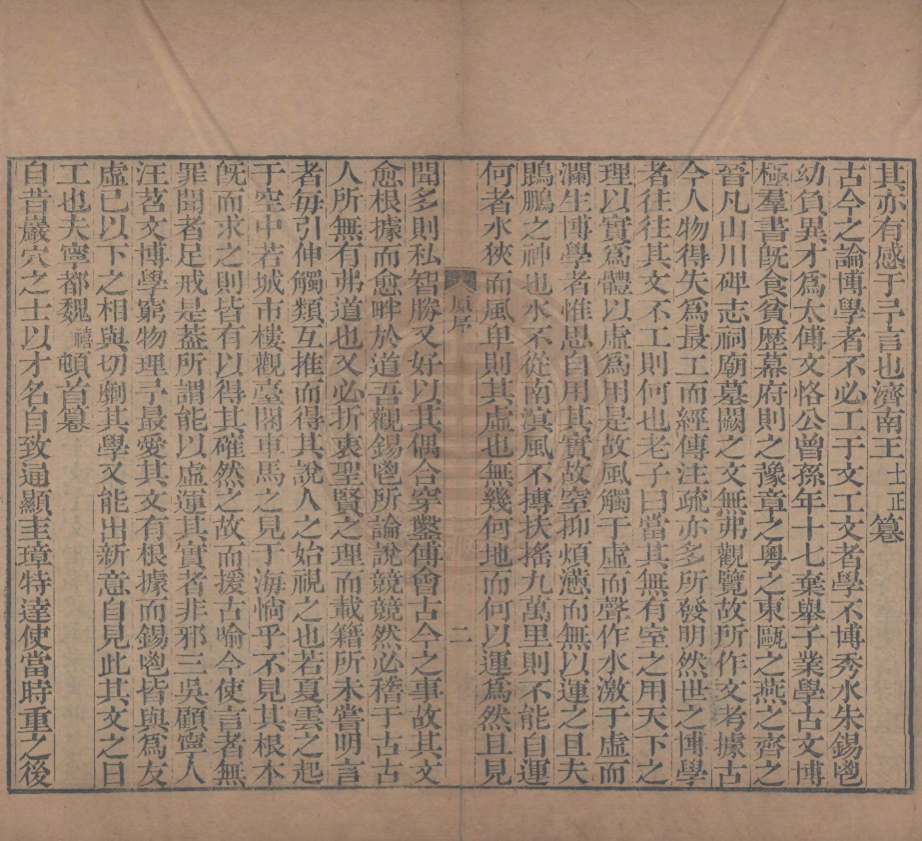 其亦有感于予言也濟南王士正篹
古今之論博學者不必工于文工文者學不博秀水朱錫鬯
幼負異才爲太傅文恪公曾孫年十七棄舉子業學古文博
極羣書旣食貧歷幕府則之豫章之粵之東甌之燕之齊之
晉凡山川碑志祠廟墓闕之文無弗觀覽故所作文考據古
今人物得失爲最工而經傳注疏亦多所發明然世之博學
者往往其文不工則何也老子曰當其無有室之用天下之
理以實爲體以虛爲用是故風觸于虛而聲作水激于虛而
瀾生博學者惟思自用其實故窒抑煩懣而無以運之且夫
鵾鵬之神也水不從南溟風不摶扶搖九萬里則不能自運
何者水狹而風卑則其虛也無幾何地而何以運爲然且見
原序
二
聞多則私智勝又好以其偶合穿鑿傅會古今之事故其文
愈根據而愈畔於道吾觀錫鬯所論說競競然必稽于古古
人所無有弗道也又必折衷聖賢之理而載籍所未嘗明言
者每引伸觸類互推而得其說人之始視之也若夏雲之起
于空中若城市樓觀臺閣車馬之見于海惝乎不見其根本
旣而求之則皆有以得其確然之故而援古喻今使言者無
罪聞者足戒是葢所謂能以虛運其實者非邪三吳顧寧人
汪苕文博學窮物理予最愛其文有根據而錫鬯皆與爲友
虛已以下之相與切劘其學又能出新意自見此其文之日
工也夫寧都魏禧頓首篹
自昔巖穴之士以才名自致通顯圭璋特達使當時重之後